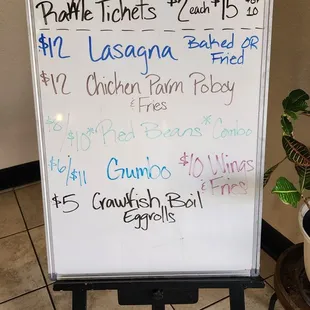 Raffle Tickets $2 each $15 for 10
$12 Lasagna Baked OR Fried
$12 Chicken Parm Poboy
& Fries
$8/$10 Red Beans *Combo
$6/$11 Gumbo $10 Wings
& Fries
$5 Crawfish Boil
Eggrolls